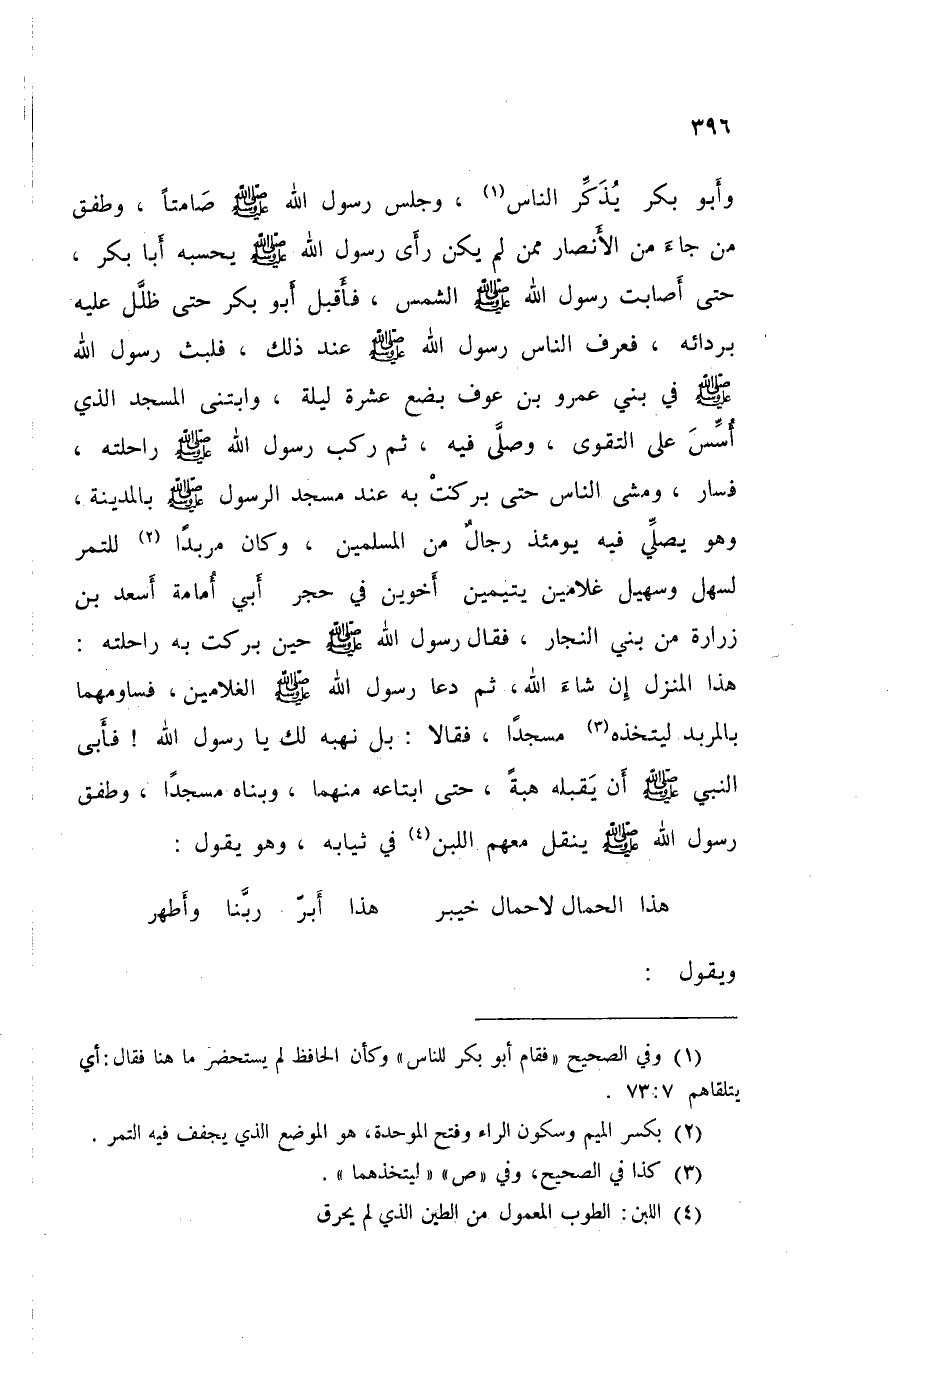 ٣٩٦
وأَبو بكر يُذَكِّر الناس(١) ، وجلس رسول الله ﷺ صَامتاً ، وطفق
من جاءَ من الأَنصار ممن لم يكن رأَى رسول الله ﷺ يحسبه أَبا بكر ،
حتى أَصابت رسول الله ﷺ الشمس ، فأَقبل أَبو بكر حتى ظلَّل عليه
بردائه ، فعرف الناس رسول الله ﷺ عند ذلك ، فلبث رسول الله
ﷺ في بني عمرو بن عوف بضع عشرة ليلة ، وابتنى المسجد الذي
أُسِّسَ على التقوى ، وصلَّى فيه ، ثم ركب رسول الله ﷺ راحلته ،
فسار ، ومشى الناس حتى بركتْ به عند مسجد الرسول ﷺ بالمدينة ،
وهو يصلِّي فيه يومئذ رجالٌ من المسلمين ، وكان مربدًا (٢) للتمر
لسهل وسهيل غلامين يتيمين أَخوين في حجر أَبي أُمامة أَسعد بن
زرارة من بني النجار ، فقال رسول الله ﷺ حين بركت به راحلته :
هذا المنزل إن شاءَ الله، ثم دعا رسول الله ﷺ الغلامين، فساومهما
بالمربد ليتخذه(٣) مسجدًا ، فقالا : بل نهبه لك يا رسول الله ! فأَبى
النبي ﷺ أَن يَقبله هبةً ، حتى ابتاعه منهما ، وبناه مسجدًا ، وطفق
رسول الله ﷺ ينقل معهم اللبن(٤) في ثيابه ، وهو يقول :
هذا الحمال لاحمال خيبر هذا أَبرّ ربَّنا وأَطهر
ويقول :
(١) وفي الصحيح «فقام أبو بكر للناس» وكأن الحافظ لم يستحضر ما هنا فقال: أي
يتلقاهم ٧٣:٧ .
(٢) بكسر الميم وسكون الراء وفتح الموحدة، هو الموضع الذي يجفف فيه التمر .
(٣) كذا في الصحيح، وفي «ص» «ليتخذهما» .
(٤) اللبن: الطوب المعمول من الطين الذي لم يحرق